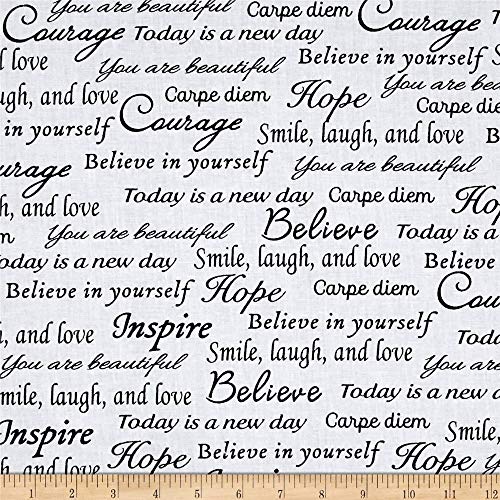 You are beautiful Carpe diem Cou
Courage Today is a new day
and love You are beautiful Believe in yourself S
ugh, and love Carpe diem Hope You are beau
in yourself Courage Carpe die
Smile, laugh, and love B
urage Believe in yourself You are beautiful
h, and love Today is a new day Carpe diem Ho
m You are beautiful Believe Today is a new
oday is a new day Smile, laugh, and love Believe
Believe in yourself Hope Carpe diem Cou
h, and love Inspire Believe in yourself
You are beautiful Smile, laugh, and love You are
mile, laugh, and love Believe Today is a new
Today is a new day Carpe diem Smile,
Inspire Hope Believe in yourself and love
1 2 3 4 5 6 7 8 9 10 11 12